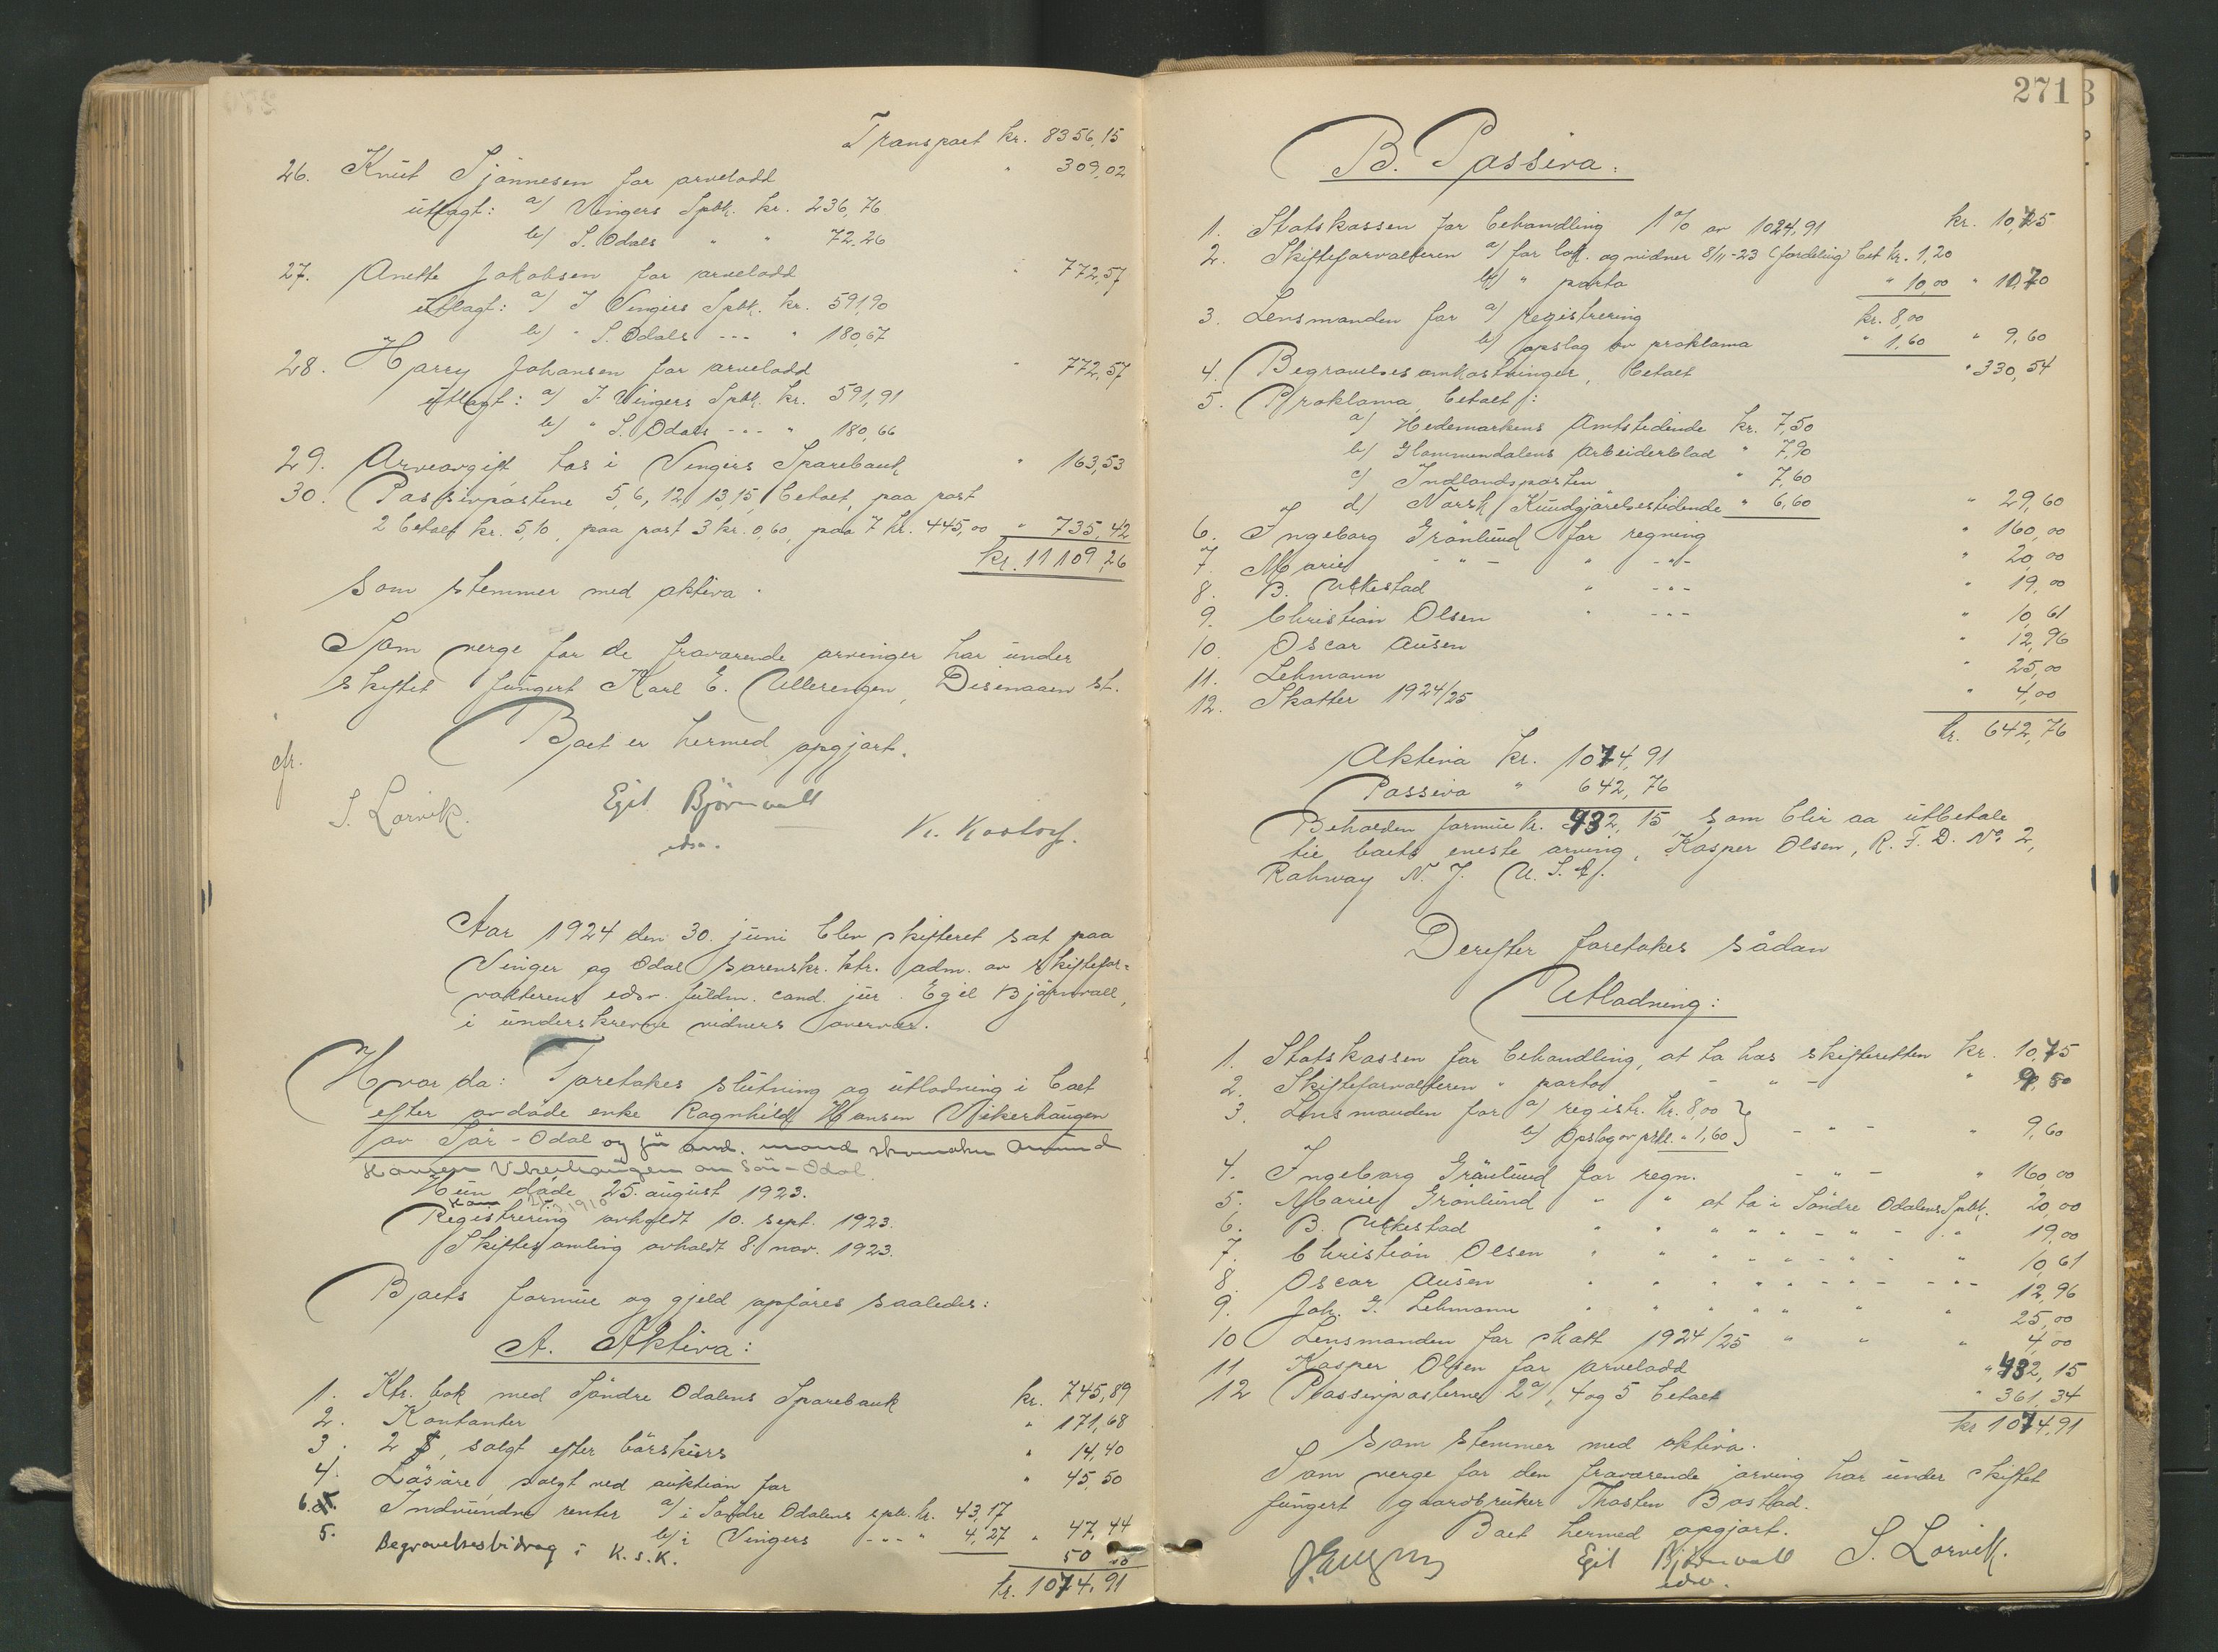 Transport kr. 8356,15
26. Knut Tjännesen for arvelodd " 309,02
utlagt: a/ Vingers Spbk. kr. 236,76
b/ S. Odals " " 72.26
27. Anette Jakobsen for arvelodd " 772,57
utlagt: a/ I Vingers Spbk. kr. 591,90
b/ " S. Odals --- " 180,67
28. Harry Johansen for arvelodd " 772,57
utlagt: a/ I Vingers Spbk. kr. 591,91
b/ " S. Odals --- " 180,66
29. Arveavgift tas i Vingers Sparebank " 163,53
30. Passivpostene 5, 6, 12, 13, 15, betalt, paa post
2 betalt kr. 5,10, paa post 3 kr. 0,60, paa 7 kr. 445,00 " 735,42
kr. 11109,26
som stemmer med aktiva.
Som verge for de fraværende arvinger har under
skiftet fungert Karl E. Ullerengen, Disenaaen st.
Boet er hermed opgjort.
cfr.
S. Lorvik. Egil Björnvall
edsv.
Aar 1924 den 30. juni blev skifteret sat paa
Vinger og Odal sorenskr. ktr. adm. av skiftefor=
valterens edsv. fuldm. cand. jur. Egil Björnvall,
i underskrevne vidners overvær.
Hvor da: Foretokes slutning og utlodning i boet
efter avdöde enke Ragnhild Hansen Vikerhaugen
av Sör-Odal og før avd. mand skomaker Amund
Hansen Vikerhaugen av Sör-Odal.
Hun döde 25. august 1923.
Registrering avholdt 10. sept. 1923.
Skiftesamling avholdt 8. nov. 1923.
Boets formue og gjeld opföres saaledes:
A. Aktiva:
1. Ktr. bok med Söndre Odalens Sparebank kr. 745,89
2. Kontanter " 171,68
3. 2 $, solgt efter börskurs " 14,40
4. Lösöre, solgt ved auktion for " 45,50
6. Indvundne renter a/ i Söndre Odalens spb. kr. 43,17
b/ i Vingers --- " 4,27 " 47,44
5. Begravelsesbidrag i K.S.K. 50
kr. 1074,91
271
B. Passiva:
1. Statskassen for behandling 1% av 1024,91 kr. 10,75
2. Skifteforvalteren a/ for lof. og vidner 8/11-23 (fordeling) bet kr. 1,20
b/ " porto " 10,00 " 10,70
3. Lensmanden for a/ registrering kr. 8,00
b/ opslag av proklama " 1,60 " 9,60
4. Begravelsesomkostninger, betalt " 330,54
5. Proklama, betalt:
a/ Hedemarkens Amtstidende kr. 7,50
b/ Glommendalens Arbeiderblad " 7,90
c/ Indlandsposten " 7,60
d/ Norsk Kundgjörelsestidende " 6,60 " 29,60
6. Ingeborg Grönlund for regning " 160,00
7. Marie - " - " - " - " 20,00
8. B. Ulkestad " - " - " 19,00
9. Christian Olsen " - " - " 10,61
10. Oscar Ausen " 12,96
11. Lehmann " 25,00
12. Skatter 1924/25 " 4,00
kr. 642,76
Aktiva kr. 1074,91
Passiva " 642,76
Beholden formue kr. 432,15 som blir aa utbetale
til boets eneste arving, Kasper Olsen, R. F. D. No. 2,
Rahway N. J. U. S. A.
Derefter foretokes sådan
Utlodning:
1. Statskassen for behandling, at ta hos skifteretten kr. 10,75
2. Skifteforvalteren " porto - " - " 9,50
3. Lensmanden for a/ registr. kr. 8,00
b/ Opslag av prkl. " 1,60 - " - " 9,60
4. Ingeborg Grönlund for regn. - " - " 160,00
5. Marie Grönlund " " at ta i Söndre Odalens Spbk. 20,00
6. B. Ulkestad " " " " - " - " 19,00
7. Christian Olsen " " " " - " - " 10,61
8. Oscar Ausen " " " " - " - " 12,96
9. Joh. G. Lehmann " " " " " " 25,00
10 Lensmanden for skatt 1924/25 " " " 4,00
11 Kasper Olsen for arvelodd " 432,15
12 Passivposterne 2a/, 4 og 5 betalt " 361,34
kr 1074,91
som stemmer med aktiva.
Som verge for den fraværende arving har under skiftet
fungert gaardbruker Thosten Bostad.
Boet hermed opgjort.
Egil Björnvall S. Lorvik.
edsv.